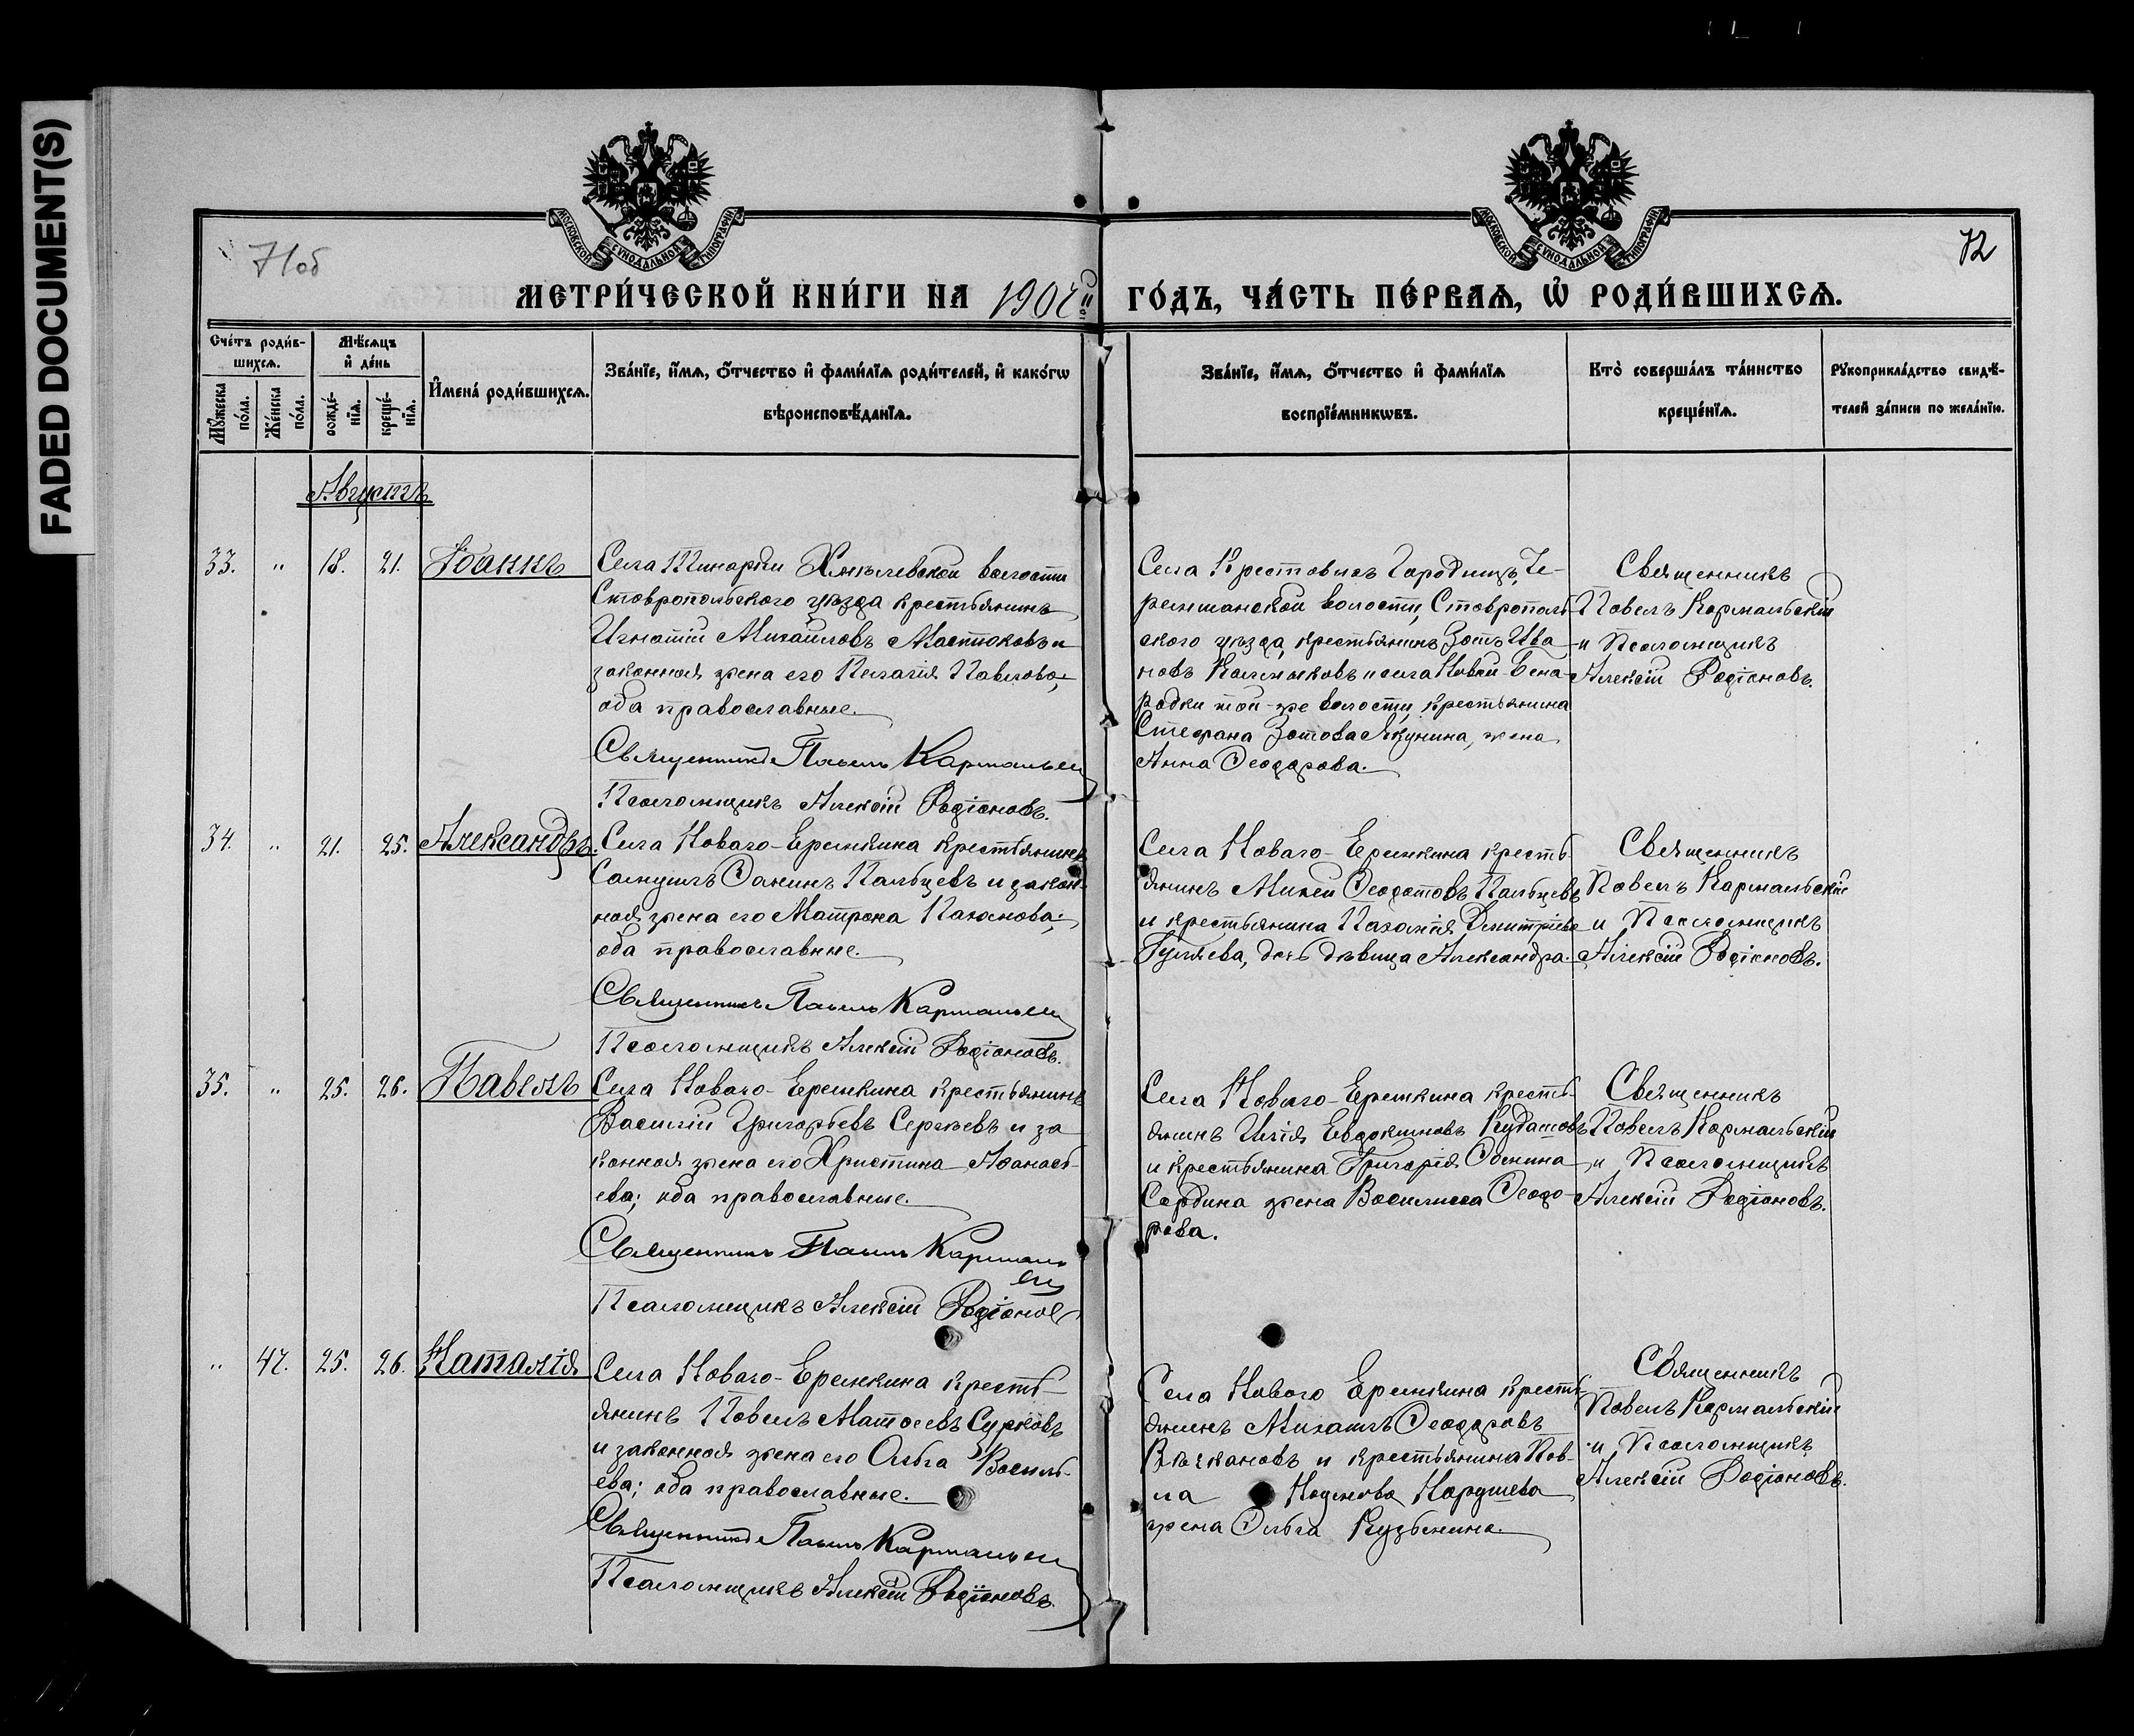 FADED DOCUMENT(S)
МОСКОВСКОЙ СѴНОДАЛЬНОЙ ТИПОГРАФІИ
МОСКОВСКОЙ СѴНОДАЛЬНОЙ ТИПОГРАФІИ
71об
72
МЕТРИ́ЧЕСКОЙ КНИ́ГИ НА 190 й ГО́ДЪ, ЧА́СТЬ ПЕ́РВАѦ, Ѡ҆ РОДИ́ВШИХСѦ.
Сче́тъ роди́в-
шихсѧ.
Мꙋ́жеска по́ла.
Же́нска по́ла.
Мѣ́сѧцъ
и҆ де́нь
рожде́-
нїѧ.
креще́-
нїѧ.
И҆мена̀ роди́вшихсѧ.
Зва́нїе, и҆́мѧ, ѻ҆́тчество и҆ фами́лїѧ роди́телей, и҆ како́гѡ
вѣроисповѣ́данїѧ.
Зва́нїе, и҆́мѧ, ѻ҆́тчество и҆ фами́лїѧ
воспрїе́мникѡвъ.
Кто̀ соверша́лъ та́инство
креще́нїѧ.
Рꙋкоприкла́дство свидѣ́-
телей за́писи по жела́нїю.
Августъ
33. " 18. 21. Іоаннъ
Села Тинарки Хмѣлевской волости
Ставропольского уѣзда крестьянинъ
Игнатій Михаиловъ Мастюковъ и
законная жена его Пелагія Павлова;
оба православные.
Священникъ Павелъ Кармальскій
Псаломщикъ Алексій Родіоновъ.
Села Крестовыхъ Городищъ, Че-
ремшанской волости, Ставрополь-
ского уѣзда, крестьянинъ Зотъ Ива-
новъ Калмыковъ и села Новой Бина-
радки той-же волости, крестьянина
Стефана Зотова Якунина, жена
Анна Ѳеодорова.
Священникъ
Павелъ Кармальскій
и Псаломщикъ
Алексій Родіоновъ.
34. " 21. 25. Александръ.
Села Новаго-Еремкина крестьянинъ
Самуилъ Ѳанинъ Пальцевъ и закон-
ная жена его Матрона
оба православные.
Священникъ Павелъ Кармальскій
Псаломщикъ Алексій Родіоновъ.
Села Новаго-Еремкина кресть-
янинъ Ѳеодотовъ Пальцевъ
и крестьянина Пахомія Димитріева
Гуляева, дочь дѣвица Александра.
Священникъ
Павелъ Кармальскій
и Псаломщикъ
Алексій Родіоновъ.
35. " 25. 26. Павелъ
Села Новаго-Еремкина крестьянинъ
Василій Григорьевъ Сергѣевъ и за
конная жена его Христина Аѳанась-
ева; оба православные.
Священникъ Павелъ Кармаль
скій
Псаломщикъ Алексій Родіоновъ
Села Новаго-Еремкина кресть-
янинъ Илія Евдокимовъ Кудашовъ
и крестьянина Григорія Ѳомина
Сардина жена Василисса Ѳеодо-
рова.
Священникъ
Павелъ Кармальскій
и Псаломщикъ
Алексій Родіоновъ.
" 47. 25. 26. Наталія
Села Новаго-Еремкина кресть-
янинъ Павелъ Матѳеевъ Сурковъ
и законная жена его Ольга Василь-
ева; оба православные.
Священникъ Павелъ Кармальскій
Псаломщикъ Алексій Родіоновъ.
Села Новаго Еремкина кресть-
янинъ Михаилъ Ѳеодоровъ
и крестьянина Пав-
ла Наумова
жена Ольга Кузьмина.
Священникъ
Павелъ Кармальскій
и Псаломщикъ
Алексій Родіоновъ.